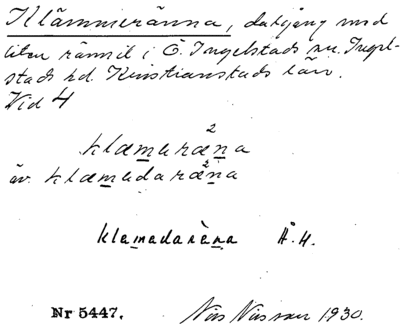 Klämmeränna, dalgång med
liten rännil i Ö. Ingelstads sn. Ingel-
stads hd. Kristianstads län.
Vid 4
klæməræ²na
äv. klæmədaræ²na
klæmadaræ̀na Å. H.
Nr 5447. Nils Nilsson 1930.